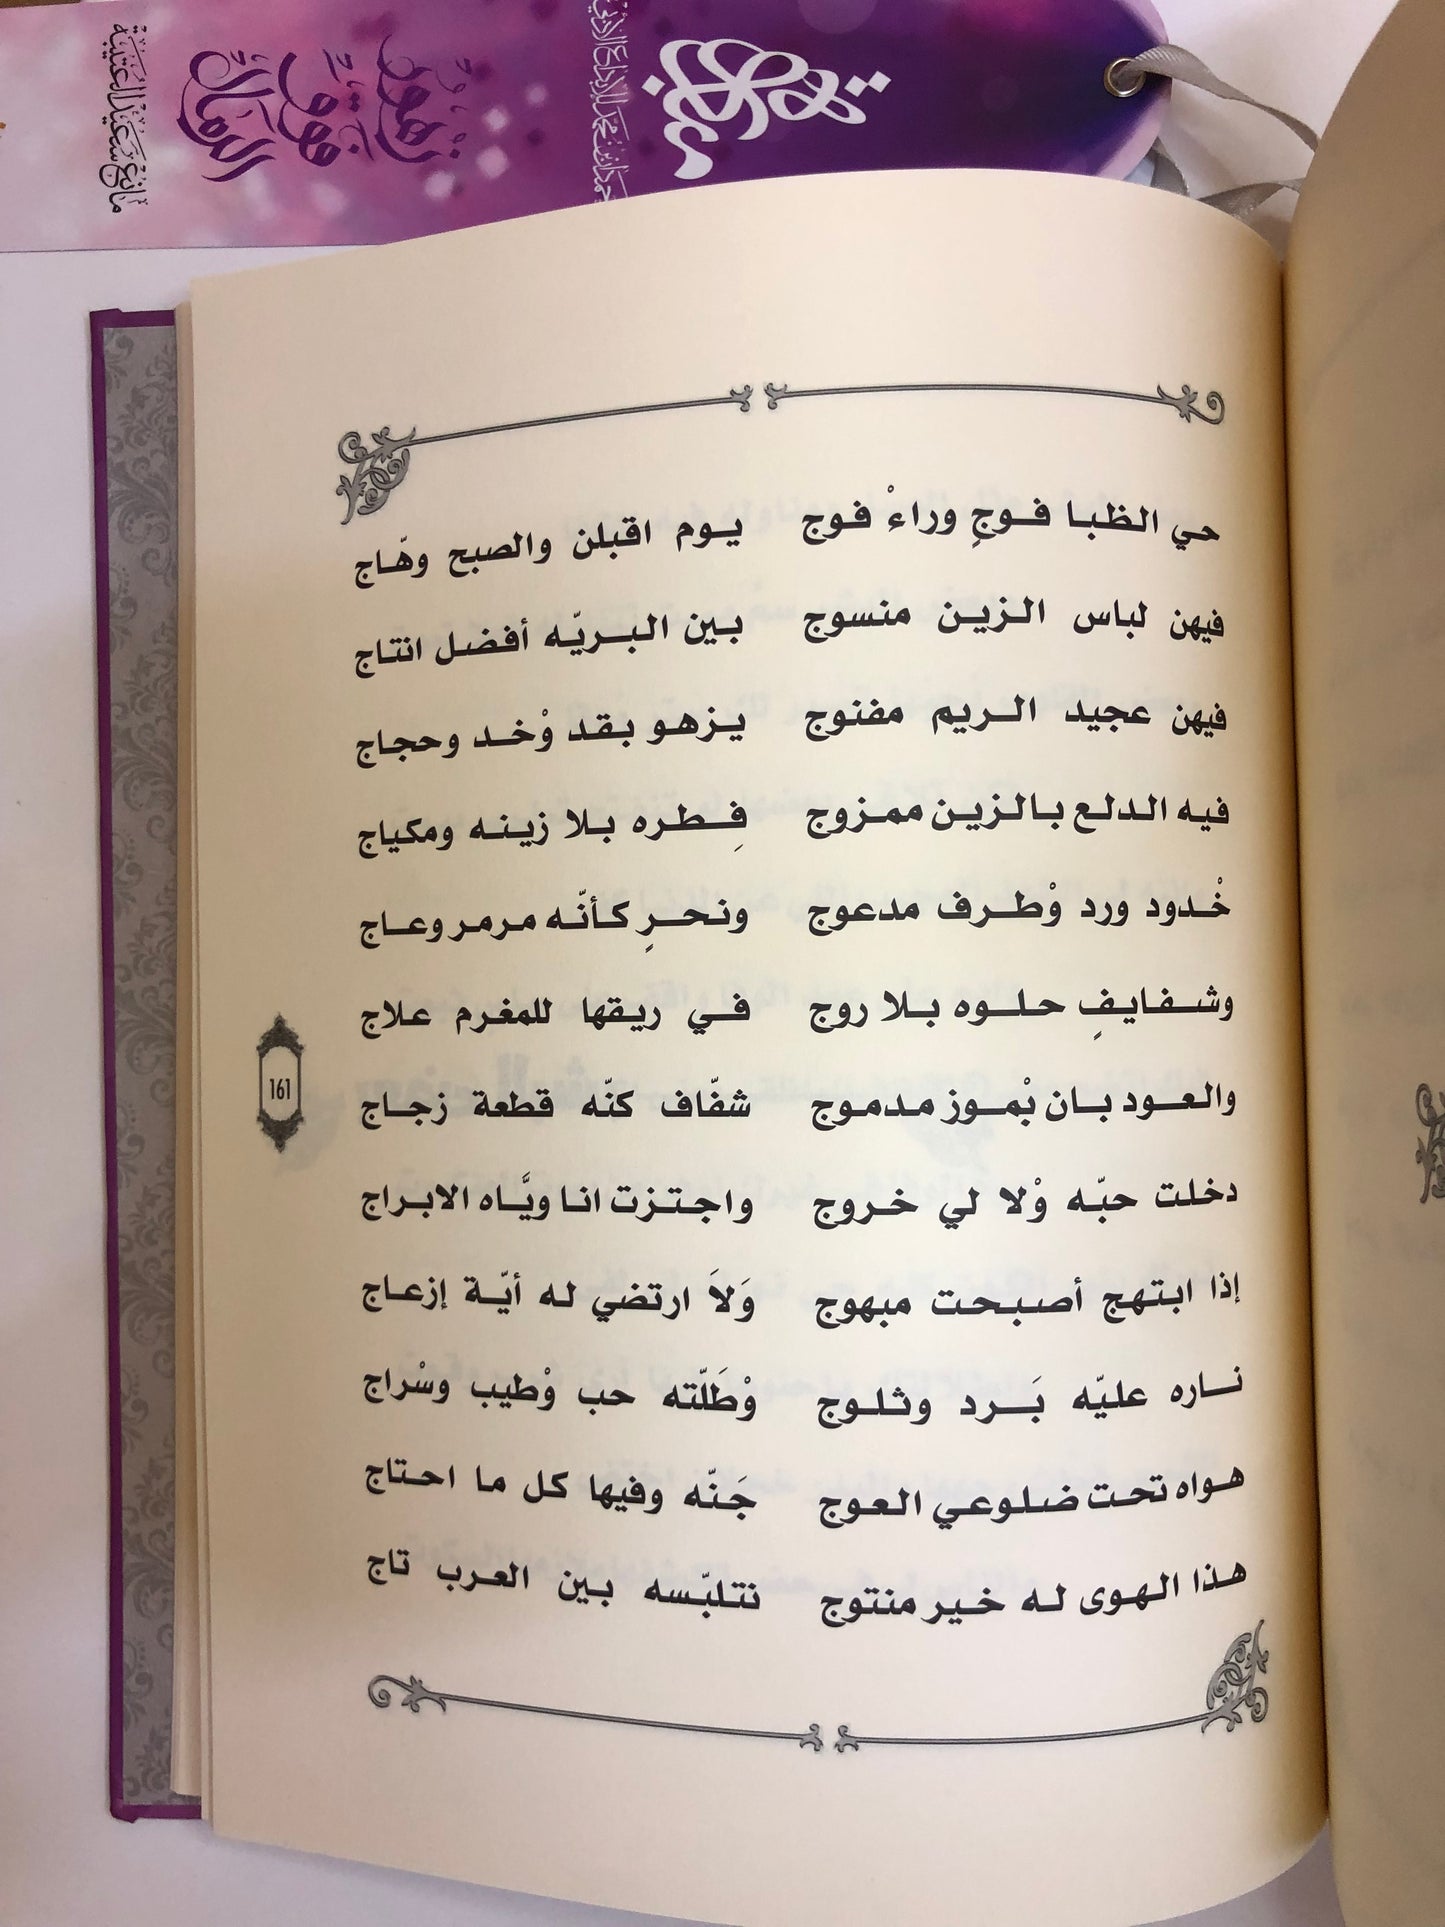 زهور
فوق
الرمال
مانع سعيد العتيبة
حي الظبا فوجٍ وراءْ فوج يوم اقبلن والصبح وهّاج
فيهن لباس الزين منسوج بين البريّه أفضل انتاج
فيهن عجيد الريم مفنوج يزهو بقد وْخد وحجاج
فيه الدلع بالزين ممزوج فِطره بلا زينه ومكياج
خْدود ورد وْطرف مدعوج ونحرٍ كأنّه مرمر وعاج
وشفايفٍ حلوه بلا روج في ريقها للمغرم علاج
والعود بان بْموز مدموج شفّاف كنّه قطعة زجاج
دخلت حبّه وْلا لي خروج واجتزت انا ويَّاه الابراج
إذا ابتهج أصبحت مبهوج وَلاَ ارتضي له أيّة إزعاج
ناره عليّه بَرد وثلوج وْطَلّته حب وْطيب وسْراج
هواه تحت ضلوعي العوج جَنّه وفيها كل ما احتاج
هذا الهوى له خير منتوج نتلبّسه بين العرب تاج
161